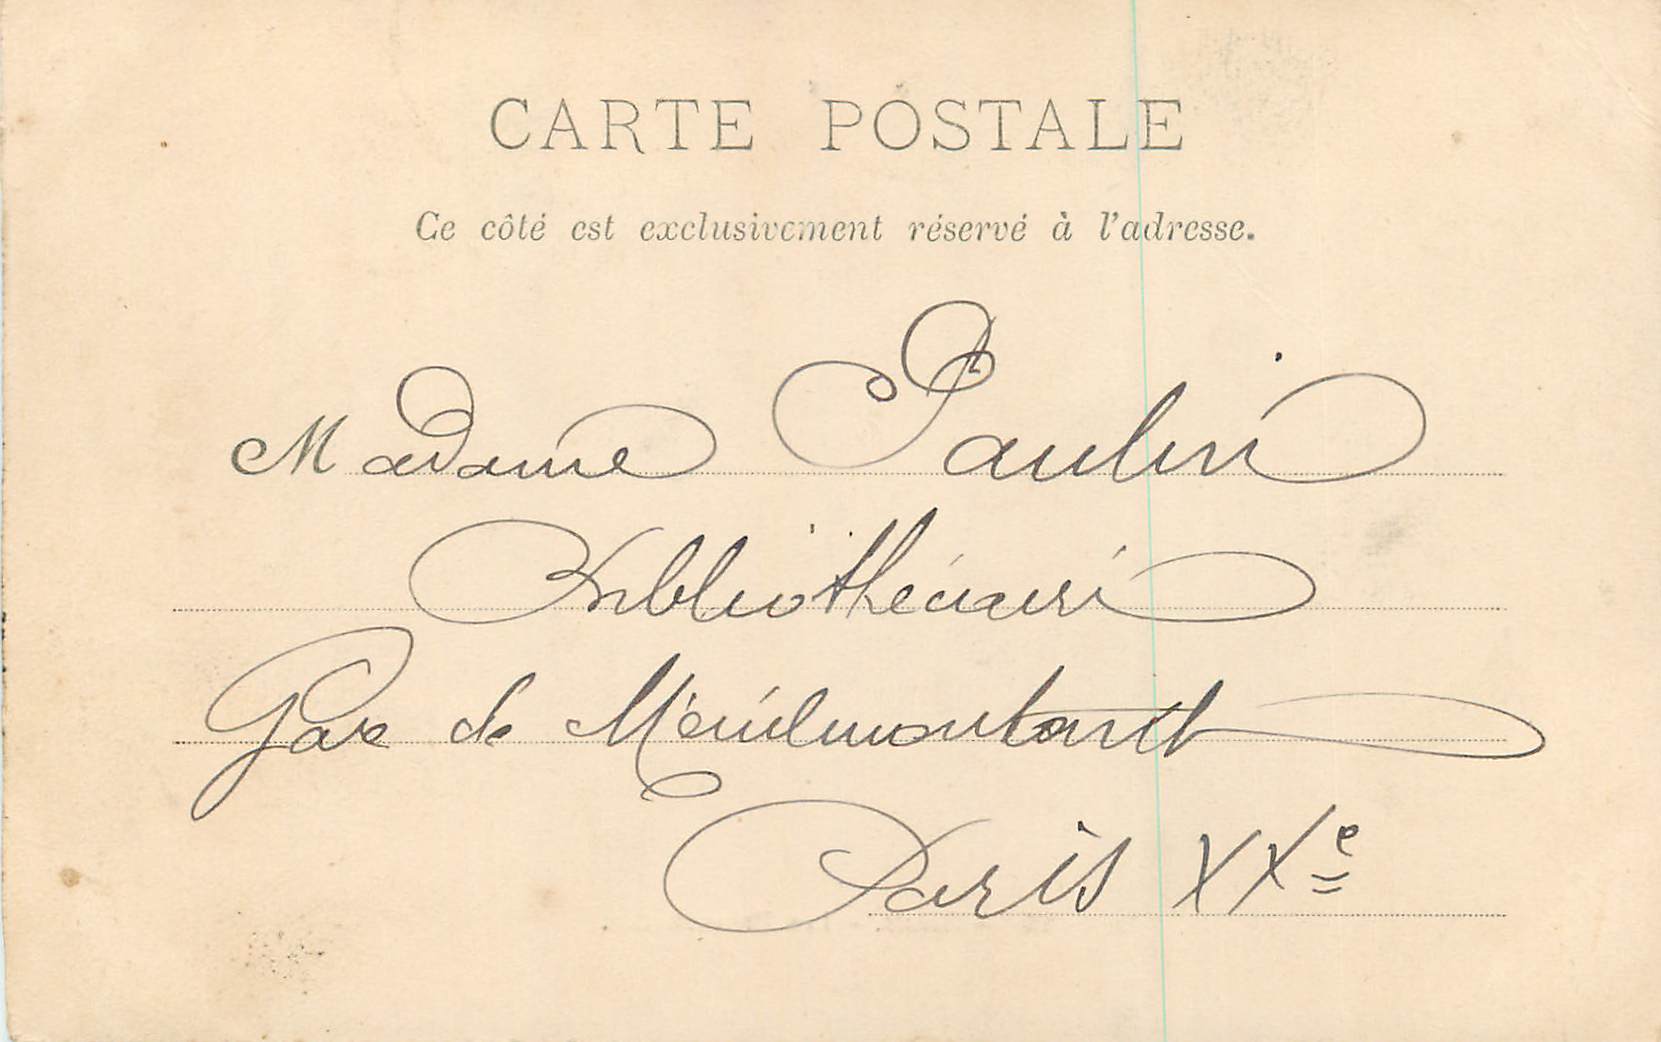 CARTE POSTALE
Ce côté est exclusivement réservé à l'adresse.
Madame Paulin
Bibliothécaire
Gare de Ménilmontant
Paris XXe